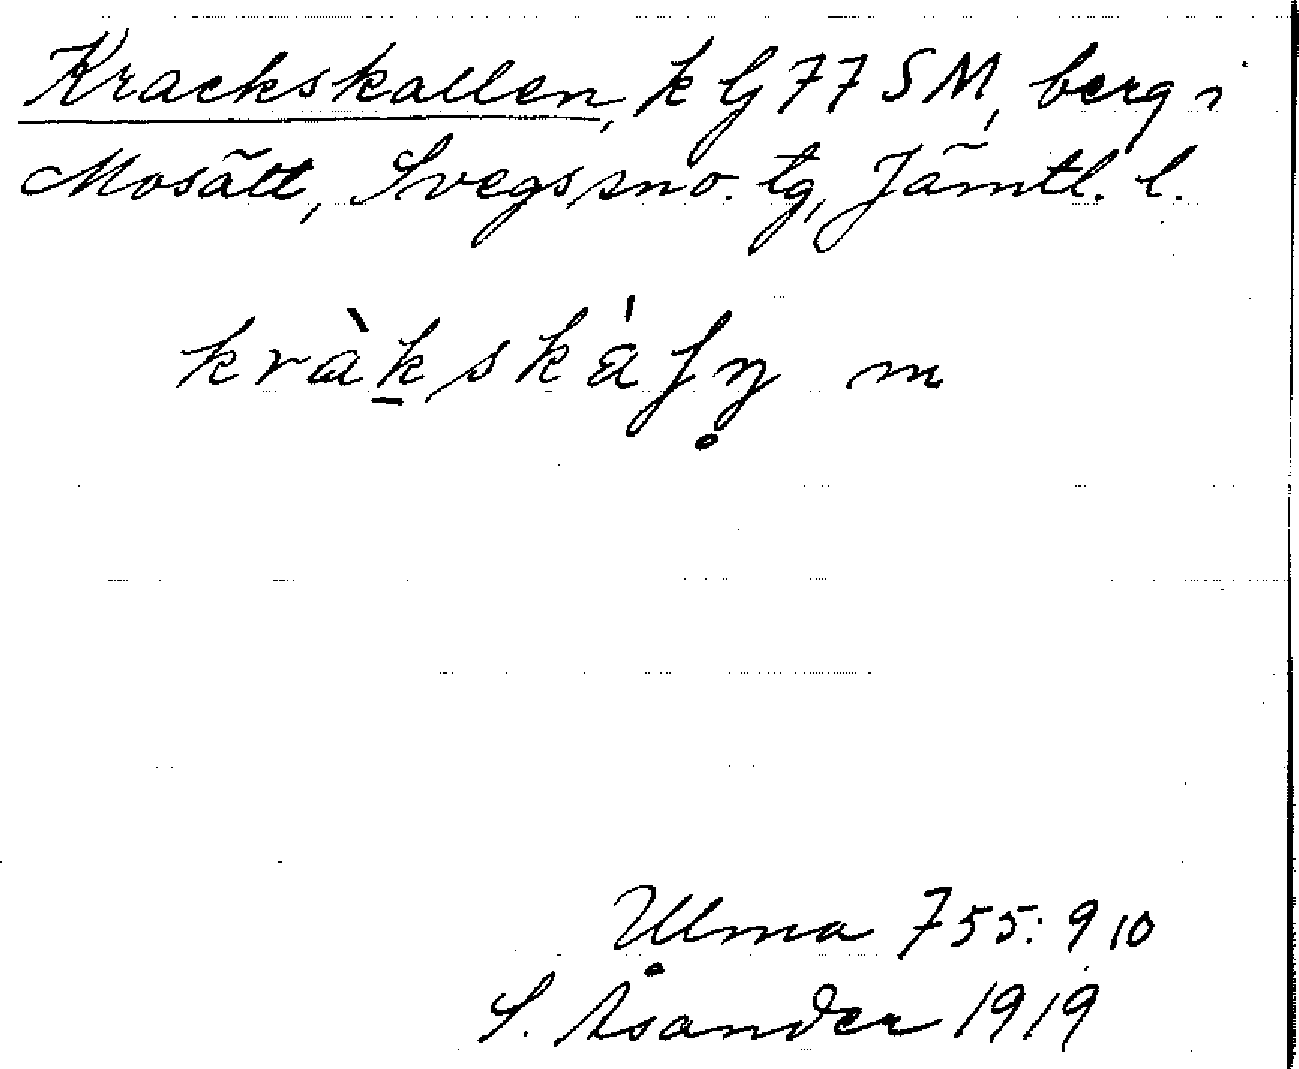 Krackskallen, k G 77 SM, berg i
Mosätt, Svegs sno. tg, Jämtl. l.
kràkskáſn̥ m
Ulma 755: 9 10
S. Åsander 1919